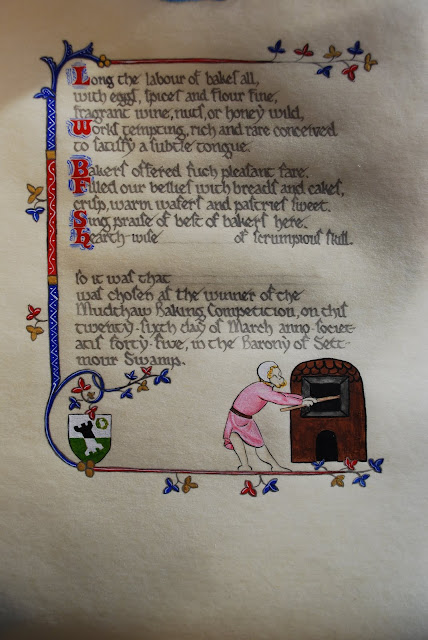 Long the labour of bakes all,
with eggs, spices and flour fine,
fragrant wine, nuts, or honey wild,
Works tempting, rich and rare conceived
to satisfy a subtle tongue.
Bakers offered such pleasant fare.
Filled our bellies with breads and cakes,
crisp, warm wafers and pastries sweet.
Sing praise of best of bakers here.
Hearth wise of scrumpious skill.
so it was that
was chosen as the winner of the
Mudthaw Baking Competition, on this
twenty-sixth day of March anno societ-
atis forty-five, in the Barony of Sett-
mour Swamp.